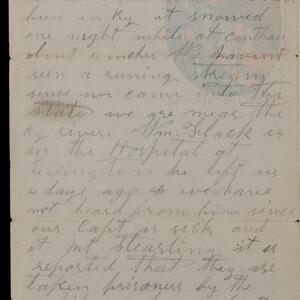 been in Ky it snowed
one night while at cinthan
about 4 inches We havent
seen a runing stream
since we came into this
state we are near the
Ky river. Wm. Flack is
in the Hospital at
Lexington he left us
4 days ago & we have
not heard from him since
our Capt is sick and
at Mt Stearling it is
reported that they are
taken prisoners by the